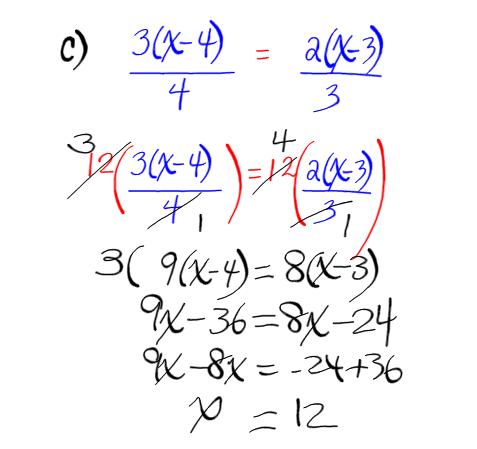 c) 3(x-4)/4 = 2(x-3)/3
3 12(3(x-4)/4 1) = 4 12(2(x-3)/3 1)
3( 9(x-4) = 8(x-3)
9x-36=8x-24
9x-8x = -24+36
x = 12